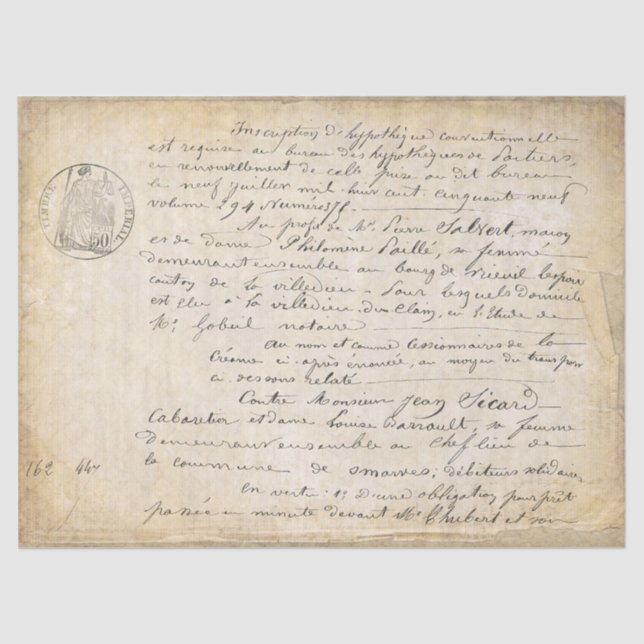 Inscription d'hypothèque conventionnelle
est requise au bureau des hypothèques de Poitiers,
en renouvellement de celle prise au dit bureau
le neuf juillet mil huit cent cinquante neuf
volume 294 Numéro 315.
Au profit de Mr. Pierre Salvert, maçon
et de dame Philomène Paillé, sa femme
demeurant ensemble au bourg de
canton de la villedieu - Pour lesquels domicile
est élu à la villedieu du Clain, en l'Etude de
Me. Gobeil notaire
au nom et comme cessionnaires de la
Créance ci-après énoncée, au moyen du transport
ci-dessous relaté
Contre Monsieur Jean Sicard
Cabaretier et dame Louise Barrault, sa femme
Demeurant ensemble au Chef lieu de
la commune de smarves; débiteurs solidaires
En vertu: 1° D'une obligation pour prêt
passée en minute devant Me. et son
TIMBRE IMPERIAL
50
162 44